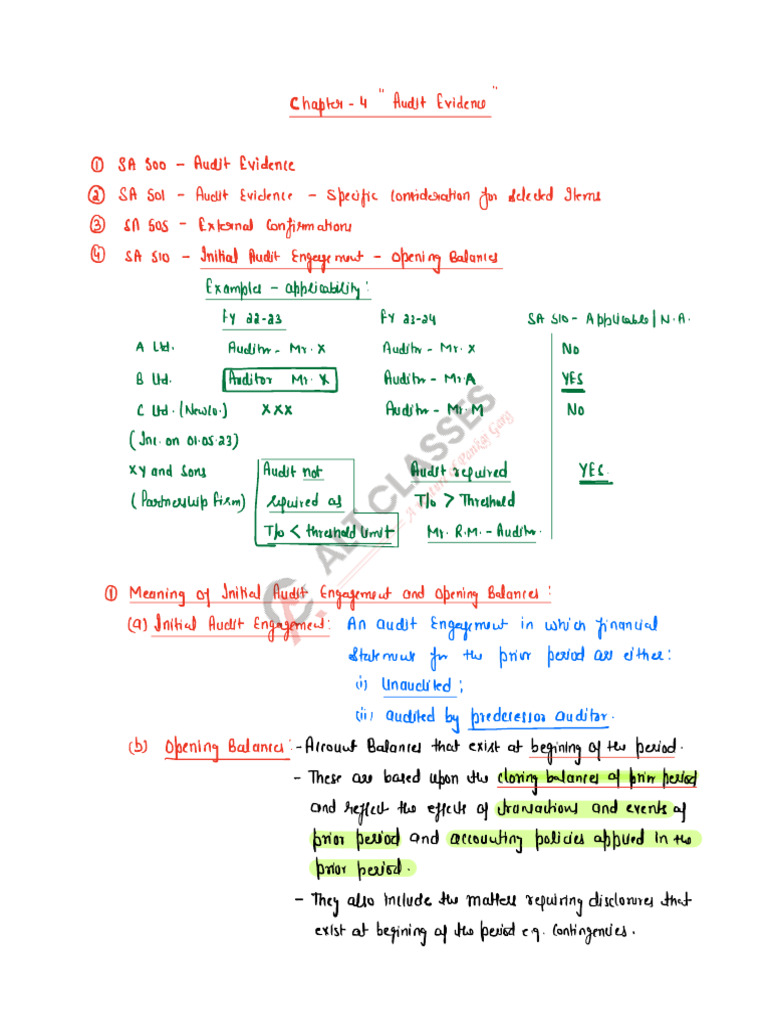 Chapter - 4 " Audit Evidence "
① SA 500 - Audit Evidence
② SA 501 - Audit Evidence - Specific Consideration for Selected Items
③ SA 505 - External Confirmations
④ SA 510 - Initial Audit Engagement - Opening Balances
Examples - applicability:
FY 22-23 FY 23-24 SA 510 - Applicable | N.A.
A Ltd. Auditor - Mr. X Auditor - Mr. X No
B Ltd. Auditor Mr. X Auditor - Mr. A YES
C Ltd. (New Co.) X X X Auditor - Mr. M No
(Inc. on 01.05.23)
XY and Sons Audit not Audit required YES
(Partnership Firm) required as T/o > Threshold
T/o < threshold limit Mr. R.M. - Auditor.
ALT CLASSES
① Meaning of Initial Audit Engagement and Opening Balances:
(a) Initial Audit Engagement: An audit Engagement in which financial
Statements for the prior period are either:
(i) Unaudited;
(ii) audited by predecessor auditor.
(b) Opening Balances: - Account Balances that exist at begining of the period.
- These are based upon the closing balances of prior period
and reflect the effects of transactions and events of
prior period and accounting policies applied in the
prior period.
- They also include the matters requiring disclosures that
exist at begining of the period e.g. Contingencies.